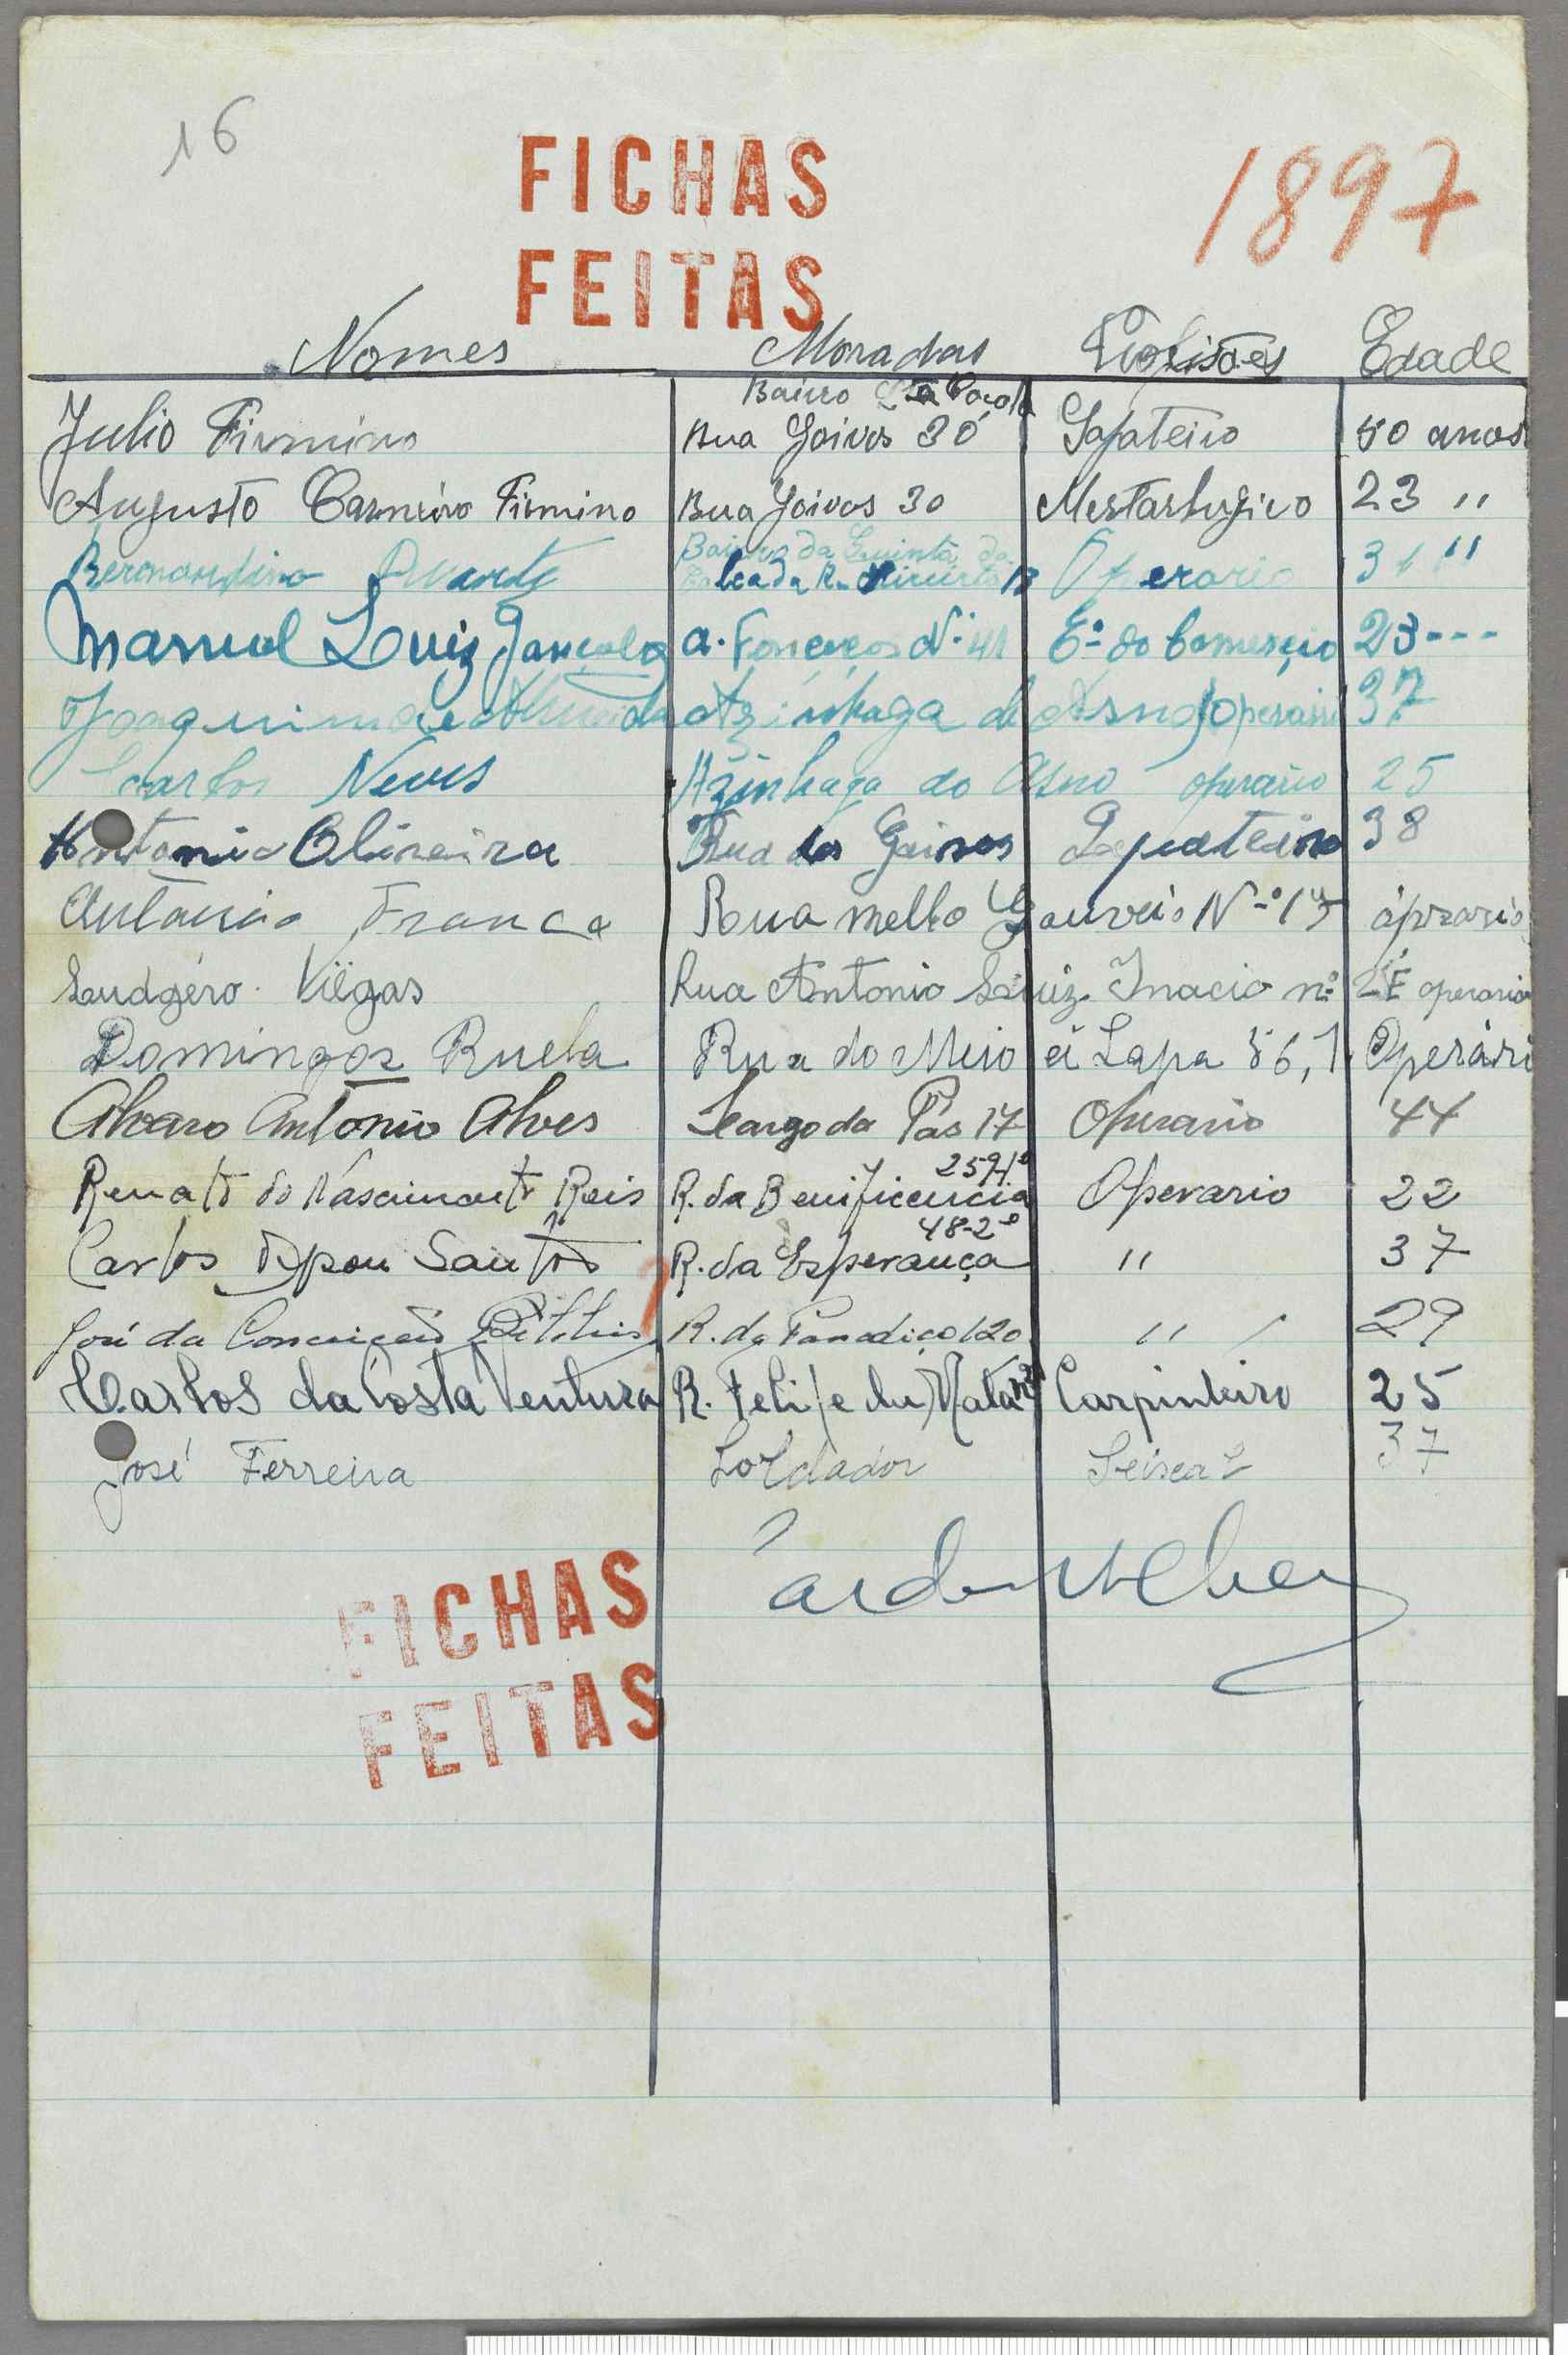 16
FICHAS
FEITAS
1897
Nomes Moradas Profisões Edade
Bairro
Julio Firmino Rua Goivos 30 Sapateiro 50 anos
Augusto Carneiro Firmino Rua Goivos 30 Mestarlugico 23 "
Bairro da Quinta da
Bernardino Duarte Calcada R. B Operario 31 "
Manuel Luiz Gonçalves a. Nº 41 Eº do Comerçio 23 ---
Joaquim de Almeida Azinhaga do Asno Operario 37
Carlos Neves Azinhaga do Asno operario 25
Antonio Oliveira Rua dos Goivos Sapateiro 38
António Franca Rua Mello Gouveio Nº 17 óperario
Ludgéro Viégas Rua Antonio Luiz Inacio nº 2 E operario
Domingos Ruela Rua do Meio á Lapa 56, 1 Operári
Alvaro Antonio Alves Largo da Pas 17 Operario 44
259-1º
Renato do Nascimento Reis R. da Benificencia Operario 22
48-2º
Carlos Santos R. da Esperança " 37
José da Conceição R. do Paradiço 120 " 29
Carlos da Costa Ventura R. Felipe da Mata nº Carpinteiro 25
José Ferreira Soldador Seixal 37
FICHAS
FEITAS